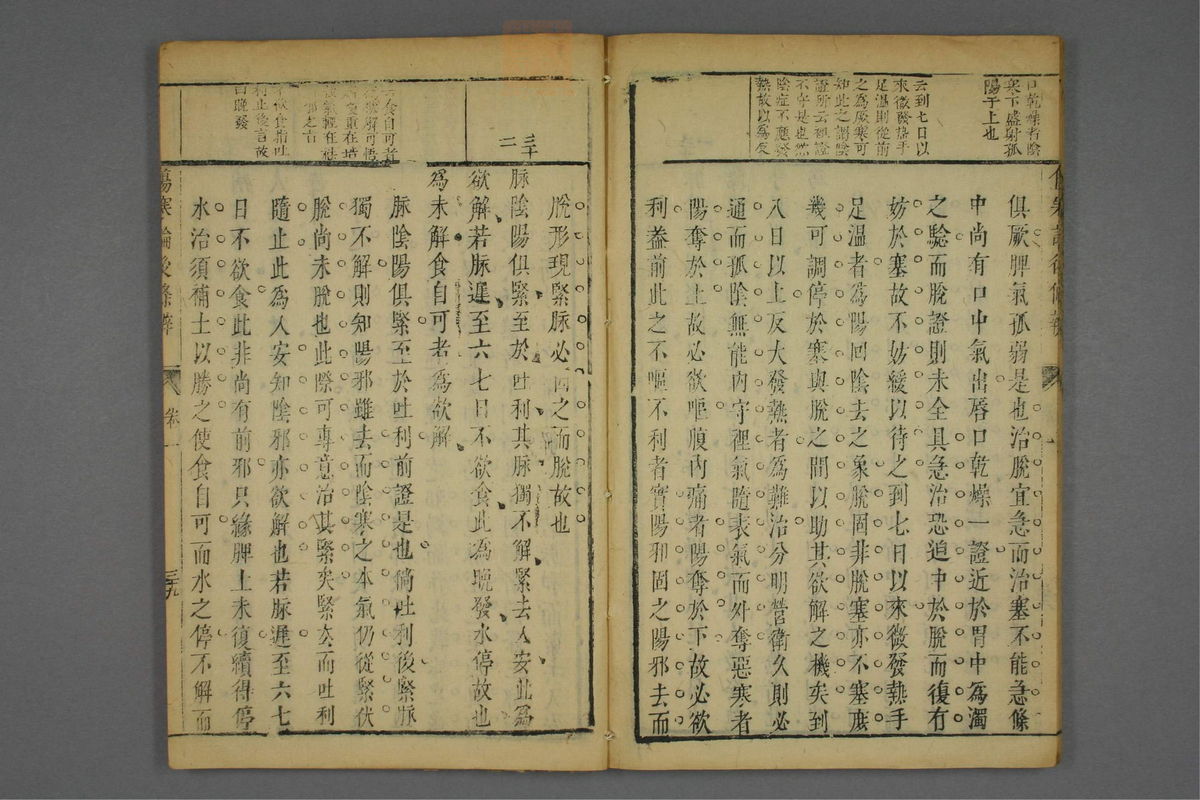 口乾燥者陰
寒下盛尉孤
陽于上也
云到七日以
來微發熱手
足溫則從前
之為厥寒可
知此之謂陰
證所云裡證
不守是也然
陰症不應發
熱故以為反
俱厥脾氣孤弱是也治脫宜急而治塞不能急條
中尚有口中氣出唇口乾燥一證近於胃中為濁
之騐而脫證則未全具急治恐追中於脫而復有
妨於塞故不妨緩以待之到七日以來微發熱手
足溫者為陽回陰去之象脫固非脫塞亦不塞庶
幾可調停於塞與脫之間以助其欲解之機矣到
入日以上反大發熱者為難治分明營衛久則必
通而孤陰無能內守裡氣隨表氣而外奪惡寒者
陽奪於上故必欲嘔腹內痛者陽奪於下故必欲
利葢前此之不嘔不利者實陽邪固之陽邪去而
三十二
食自可者
止後言故
曰晚發
脫形現緊脈必因之而脫故也
脈陰陽俱緊至於吐利其脈獨不解緊去人安此為
欲解若脈遲至六七日不欲食此為晚發水停故也
為未解食自可者為欲解
脈陰陽俱緊至於吐利前證是也倘吐利後緊脈
獨不解則知陽邪雖去而陰寒之本氣仍從緊伏
脫尚未脫也此際可專意治其緊矣緊去而吐利
隨止此為人安知陰邪亦欲解也若脈遲至六七
日不欲食此非尚有前邪只緣脾土未復續得停
水治須補土以勝之使食自可而水之停不解而
傷寒論後條辨
卷一
三九